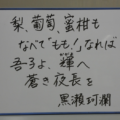 梨、葡萄、蜜柑も
なべて「もも！」なれば
吾子よ、輝へ
蒼き夜長を
黒瀬珂瀾